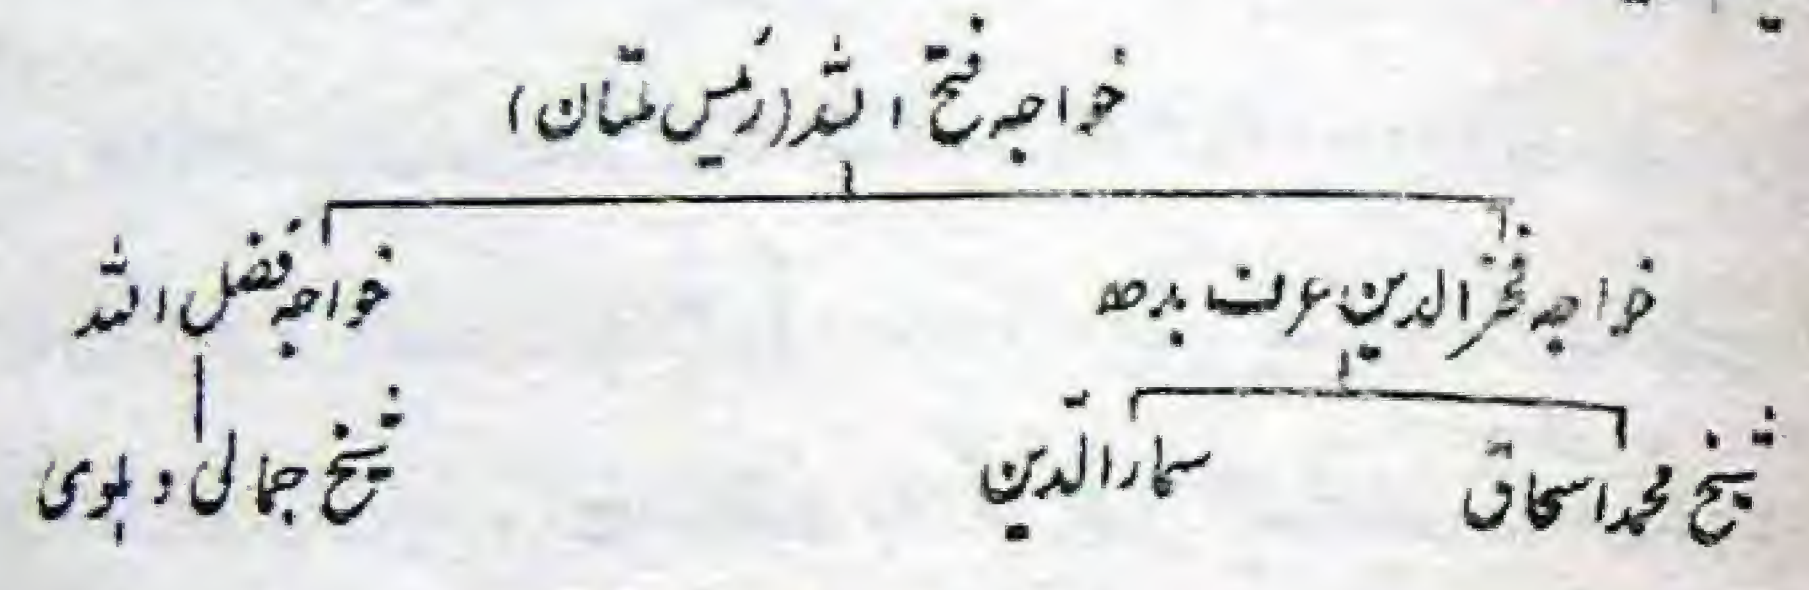 خواجہ فتح اللہ (رئیس ملتان)
خواجہ فخر الدین عرف بدھ
خواجہ فضل اللہ
شیخ محمد اسحاق
سمار الدین
شیخ جمالی دہلوی